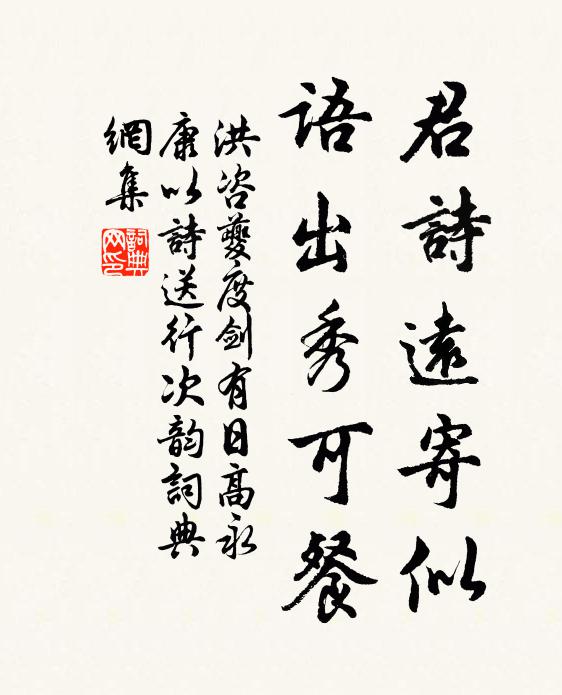 君詩遠寄似
語出秀可餐
洪咨夔度劍有日高永
康以詩送行次韵詞典
網集
詞典
网印